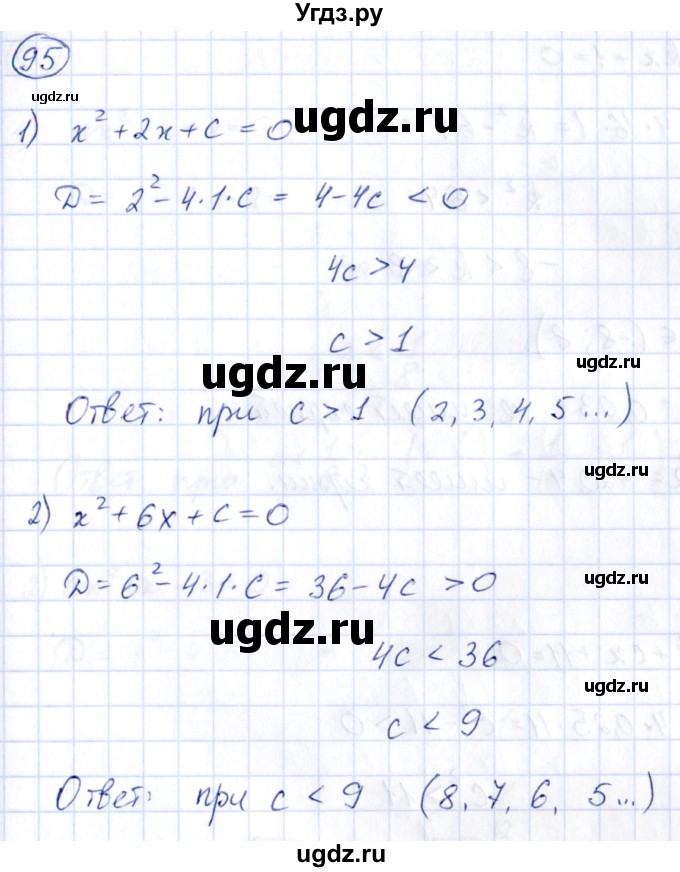 Угдз.ру
95
ugdz.ru
ugdz.ru
1) x² + 2x + c = 0
ugdz.ru
Д = 2² - 4·1·c = 4 - 4c < 0
4c > 4
ugdz.ru
c > 1
ugdz.ru
Ответ: при c > 1 (2, 3, 4, 5 ...)
ugdz.ru
2) x² + 6x + c = 0
Д = 6² - 4·1·c = 36 - 4c > 0
ugdz.ru
4c < 36
ugdz.ru
c < 9
Ответ: при c < 9 (8, 7, 6, 5 ...)
ugdz.ru